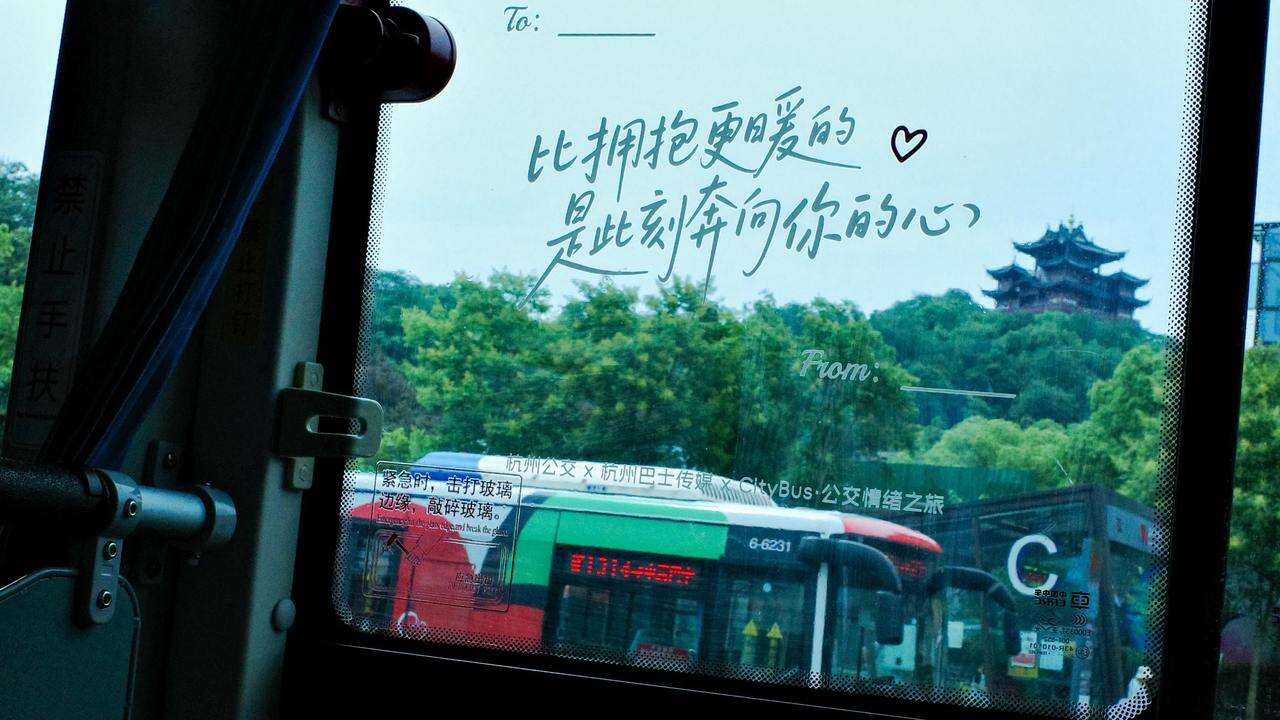 To:
比拥抱更暖的
是此刻奔向你的心
From:
杭州公交 x 杭州巴士传媒 x CityBus·公交情绪之旅
禁止手扶
紧急时，击打玻璃
边缘，敲碎玻璃。
6-6231
C